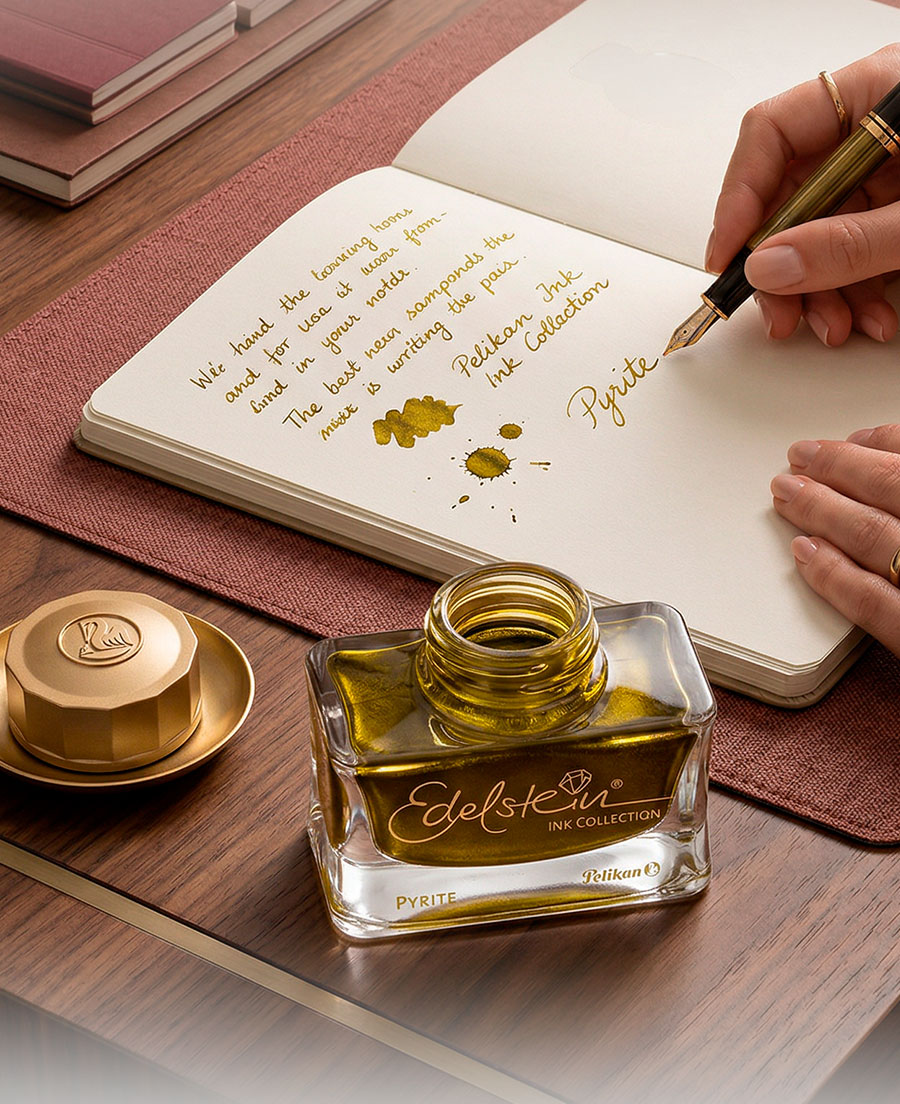 We hand the torrning hoors
and for use it warr from-
hnd in your notds.
The best nerr samponds the
mistt is writing the pais.
Pelikan Ink
Ink Collaction
Pyrite
Edelstein®
INK COLLECTION
Pelikan
PYRITE